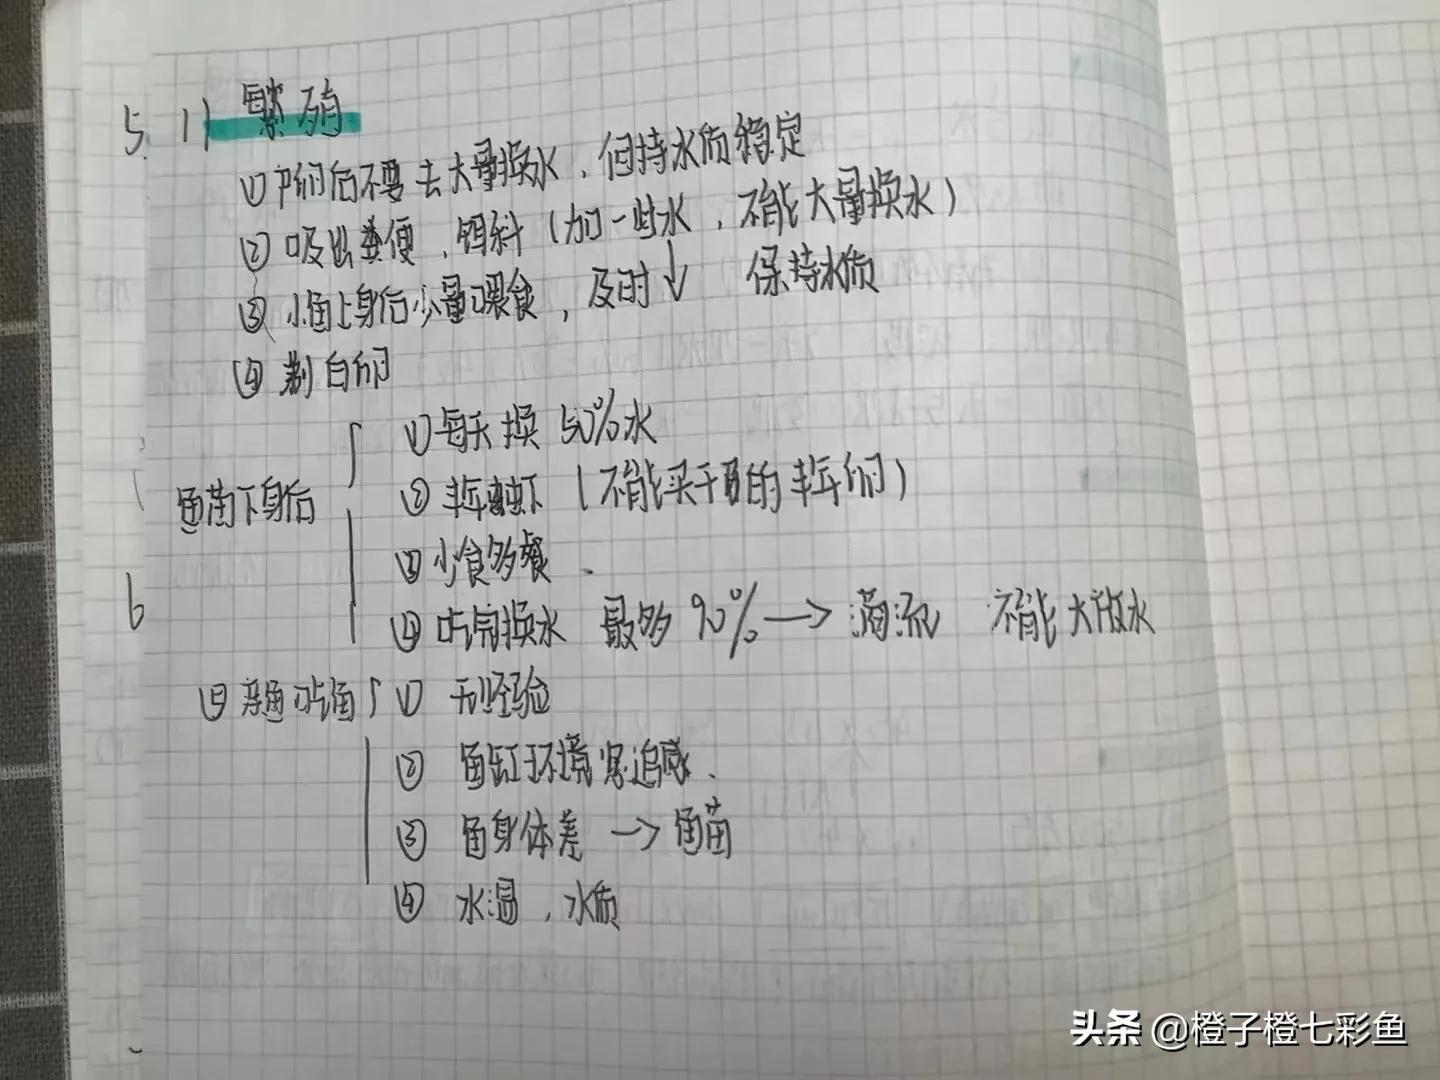 5. 1) 繁殖
① 产卵后不要去大量换水，保持水质稳定
② 吸出粪便、饵料（加一些水，不能大量换水）
③ 小鱼上身后少量喂食，及时↓ 保持水质
④ 剔白卵
① 每天换50%水
鱼苗下身后 ② 丰年虾（不能买干的丰年卵）
③ 少食多餐.
6 ④ 吃完换水 最多90%→滴流 不能大放水
⑤ 亲鱼吃鱼 ① 无经验
② 鱼缸环境紧迫感.
③ 鱼身体差→鱼苗
④ 水温，水质
头条 @橙子橙七彩鱼